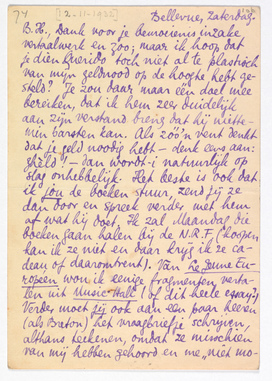 74 [2-11-1935]
Bellevue, Zaterdag.
B.H., Dank voor je bemoeienis inzake
vertaalwerk en zoo; maar ik hoop dat
je dien Querido toch niet al te plastisch
van mijn geldnood op de hoogte hebt ge-
steld? Je zou daar maar één doel mee
bereiken, dat ik hem zeer duidelijk
aan zijn verstand breng dat hij niette-
min barsten kan. Als zóó'n vent denkt
dat je geld noodig hebt – denk eens aan:
gèld! – dan wordt-i natuurlijk op
slag onhebbelijk. Het beste is ook dat
ik jou de boeken stuur, zend jij ze
dan door en spreek verder met hem
af wat hij doet. Ik zal Maandag die
boeken gaan halen bij de N.R.F. (koopen
kan ik ze niet en daar krijg ik ze ca-
deau of daaromtrent). Van Le Jeune Eu-
ropéen wou ik eenige fragmenten verta-
len uit Music-Hall (of dit heele essay?)
Verder moet jij ook aan een paar heeren
(als Braton) het vraagbriefje schrijven,
althans teekenen, omdat ze misschien
van mij hebben gehoord en me „niet mo-